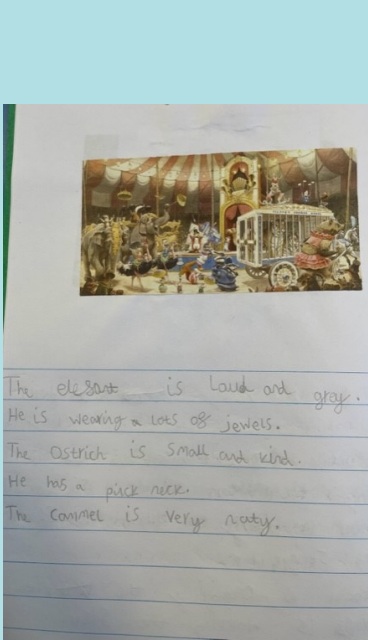 The elesant is Loud and gray.
He is wearing a lots of jewels.
The Ostrich is small and kind.
He has a pinck neck.
The cammel is very naty.